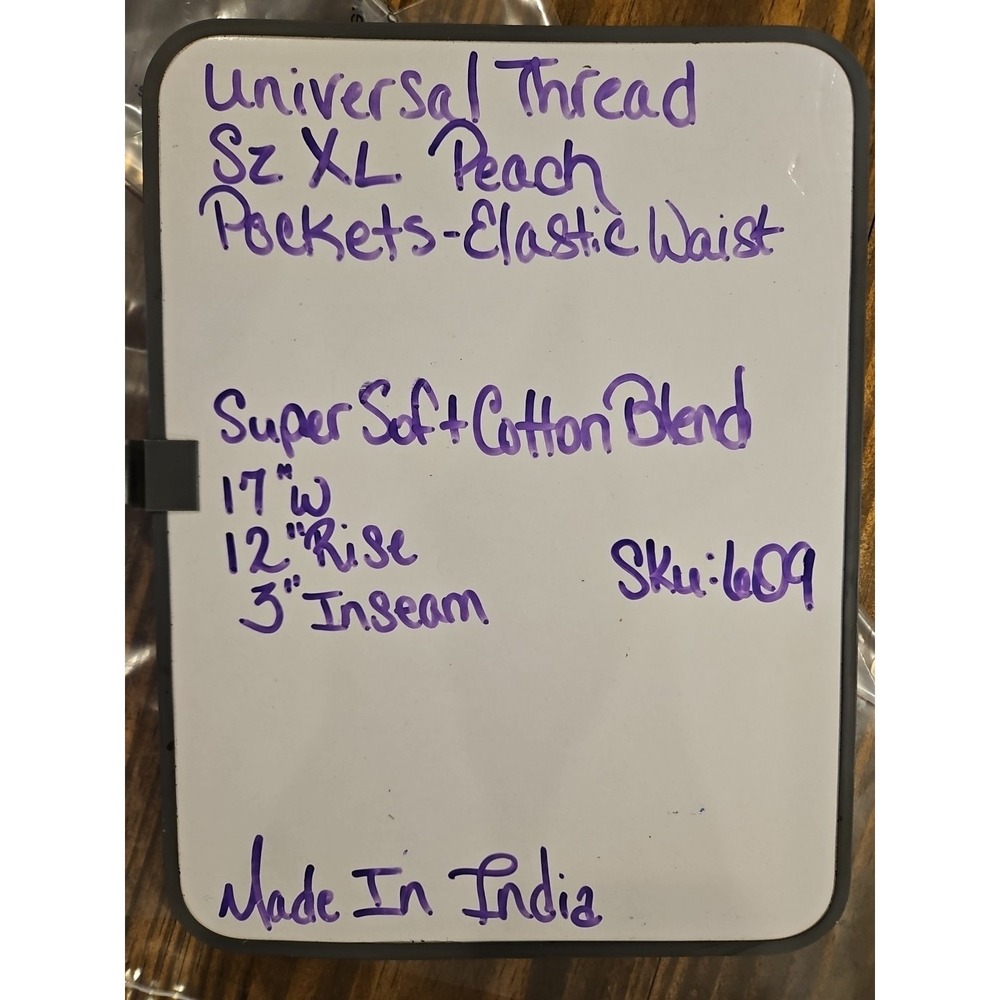 Universal Thread
Sz XL Peach
Pockets-Elastic Waist
Super Soft Cotton Blend
17"W
12"Rise
3"Inseam
Sku:609
Made In India